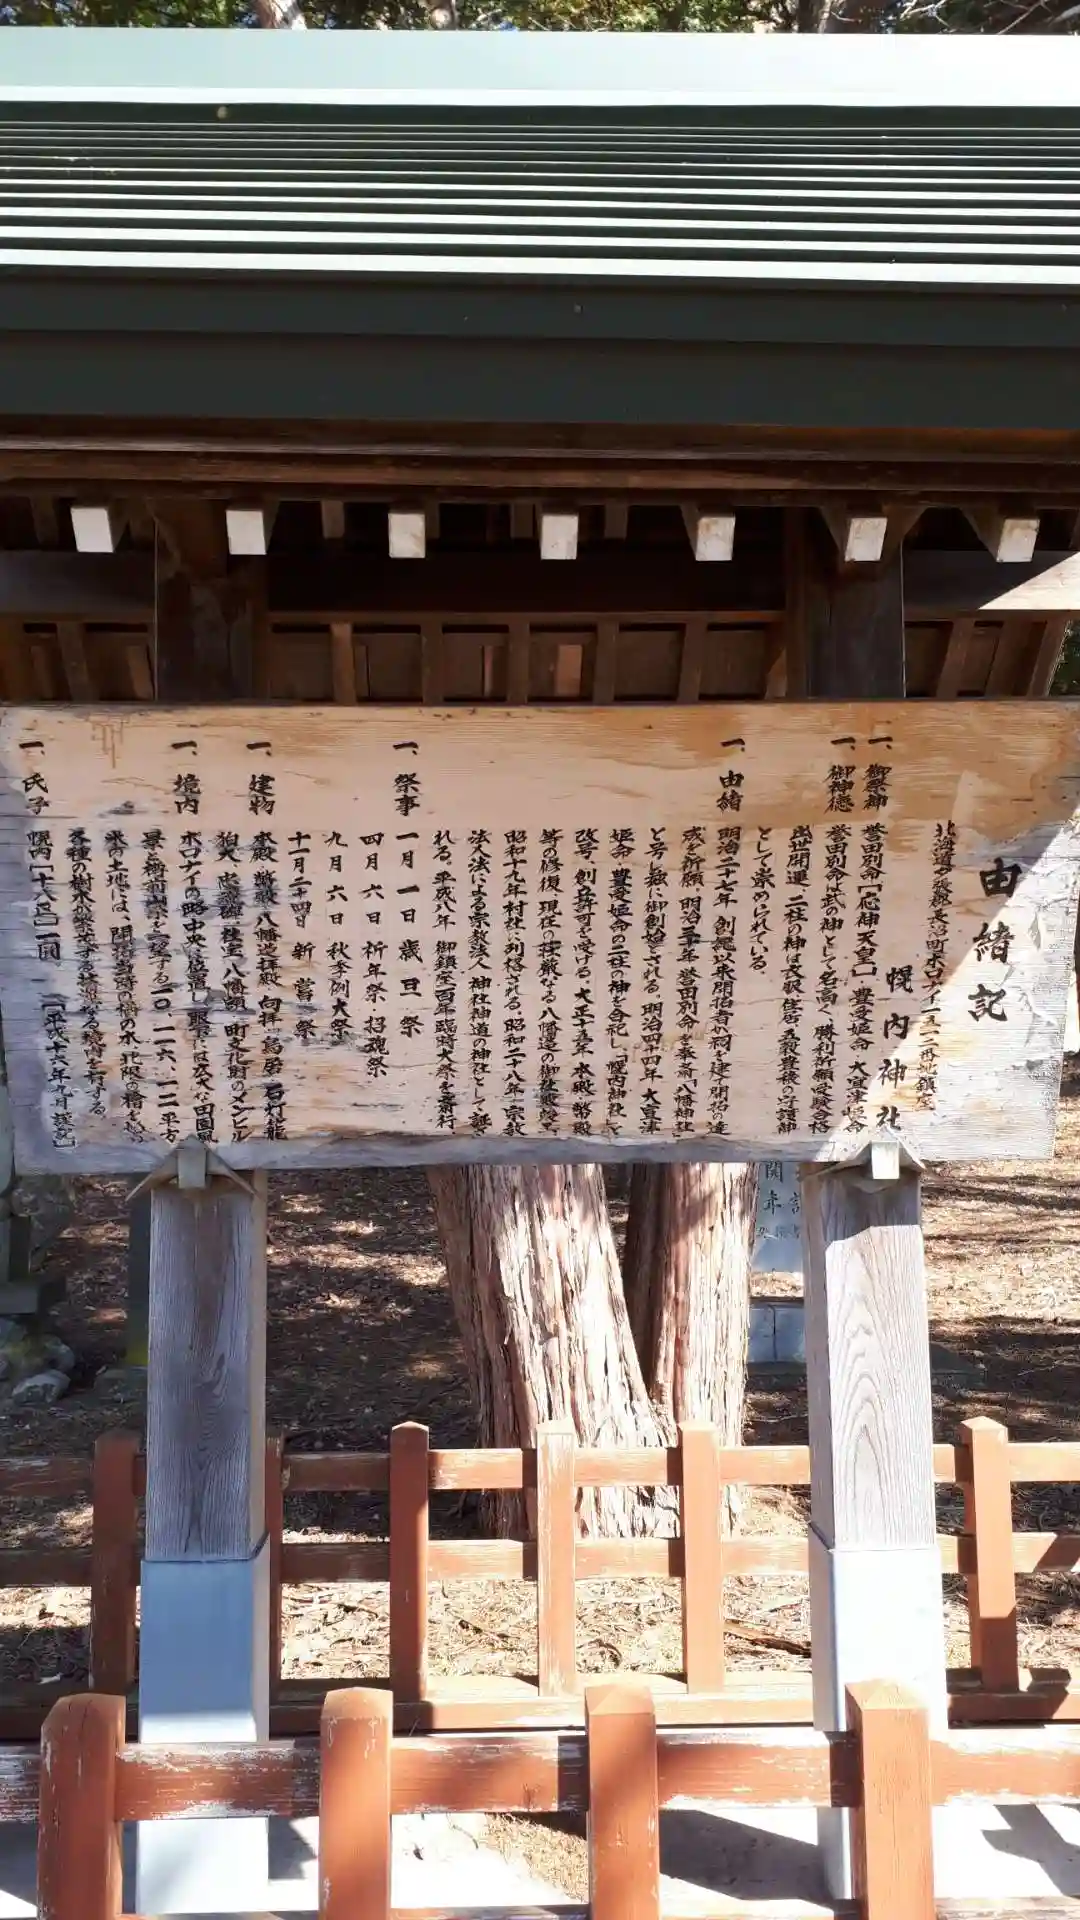 由緒記
北海道夕張郡長沼町ホロナイ一五一二番地鎮座
幌内神社
一、御祭神 誉田別命[応神天皇] 豊受姫命 大宜津姫命
一、御神徳 誉田別命は武の神として名高く、勝利祈願受験合格
出世開運、二柱の神は衣食住店五穀豊穣の守護神
として崇められている。
一、由緒 明治二十七年 創穐以来開拓者が祠を建て開拓の達
成を祈願、明治三十年 誉田別命を奉斎「八幡神社」
と号し 御創始される。明治四十四年 大宜津
姫命・豊受姫命の二柱の神を合祀し、「幌内神社」と
改号、創立許可を受ける。大正十五年 本殿、幣殿
等の修復、現在の荘厳なる八幡造の御社殿
昭和十九年村社に列格される。昭和二十八年 宗教
法人法による宗教法人 神社神道の神社として
れる。平成八年 御鎮座百年臨時大祭を斎行、
一、祭事 一月一日 歳旦祭
四月六日 祈年祭・招魂祭
九月六日 秋季例大祭
十一月二十四日 新嘗祭
一、建物 本殿 幣殿 八幡造拝殿 向拝 鳥居 石灯籠
狛犬 忠魂碑 社宝 八幡額 町文化財のメンヒル
一、境内 ホロナイの略中央に位置し 眼下には広大な田園風
景と樽前山系を一望する二〇、二一六、一二平方
米の土地には、開拓当時の楢の木、北限の檜を
各種の樹木が繁茂する 境内を有する。
一、氏子 幌内[十六区]一円 [平成十六年九月 謹記]